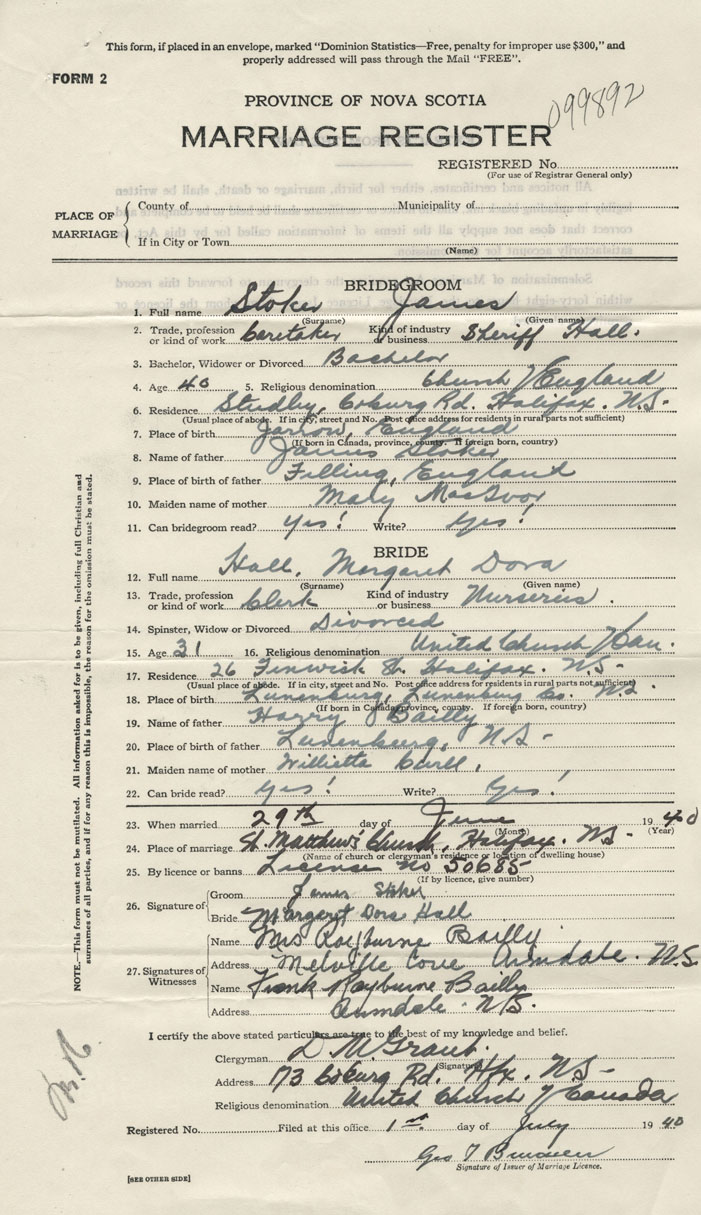 This form, if placed in an envelope, marked "Dominion Statistics—Free, penalty for improper use $300," and
properly addressed will pass through the Mail "FREE".
FORM 2
099892
PROVINCE OF NOVA SCOTIA
MARRIAGE REGISTER
REGISTERED No.
(For use of Registrar General only)
PLACE OF MARRIAGE
County of Municipality of
If in City or Town
(Name)
BRIDEGROOM
1. Full name Stoker James
(Surname) (Given name)
2. Trade, profession or kind of work Caretaker Kind of industry or business Sheriff Hall.
3. Bachelor, Widower or Divorced Bachelor
4. Age 40 5. Religious denomination Church of England
6. Residence Studley, Coburg Rd. Halifax. N.S.
(Usual place of abode. If in city, street and No. Post office address for residents in rural parts not sufficient)
7. Place of birth Jarrow, England
(If born in Canada, province, county. If foreign born, country)
8. Name of father James Stoker
9. Place of birth of father Filling, England
10. Maiden name of mother Mary MacIvor
11. Can bridegroom read? Yes! Write? Yes!
BRIDE
12. Full name Hall, Margaret Dora
(Surname) (Given name)
13. Trade, profession or kind of work Clerk Kind of industry or business Nurseries.
14. Spinster, Widow or Divorced Divorced
15. Age 31 16. Religious denomination United Church of Can.
17. Residence 26 Fenwick St. Halifax. N.S.
(Usual place of abode. If in city, street and No. Post office address for residents in rural parts not sufficient)
18. Place of birth Lunenburg, Lunenburg Co. N.S.
(If born in Canada, province, county. If foreign born, country)
19. Name of father Harry Bailly
20. Place of birth of father Lunenburg, N.S.
21. Maiden name of mother Willietta
22. Can bride read? Yes! Write? Yes!
23. When married 29th day of June 1940
(Month) (Year)
24. Place of marriage St. Matthew's Church, Halifax. N.S.
(Name of church or clergyman's residence or location of dwelling house)
25. By licence or banns License No 50685
(If by licence, give number)
26. Signature of
Groom James Stoker
Bride Margaret Dora Hall
27. Signatures of Witnesses
Name Mrs Rayburne Bailly
Address Melville Cove Armdale. N.S.
Name Frank Rayburne Bailly
Address Armdale. N.S.
I certify the above stated particulars are true to the best of my knowledge and belief.
Clergyman D M Grant.
(Signature)
Address 173 Coburg Rd. Hfx. N.S.
Religious denomination United Church of Canada
Registered No. Filed at this office 1st day of July 1940
Geo T
Signature of Issuer of Marriage Licence.
[SEE OTHER SIDE]
NOTE.—This form must not be mutilated. All information asked for is to be given, including full Christian and
surnames of all parties, and if for any reason this is impossible, the reason for the omission must be stated.